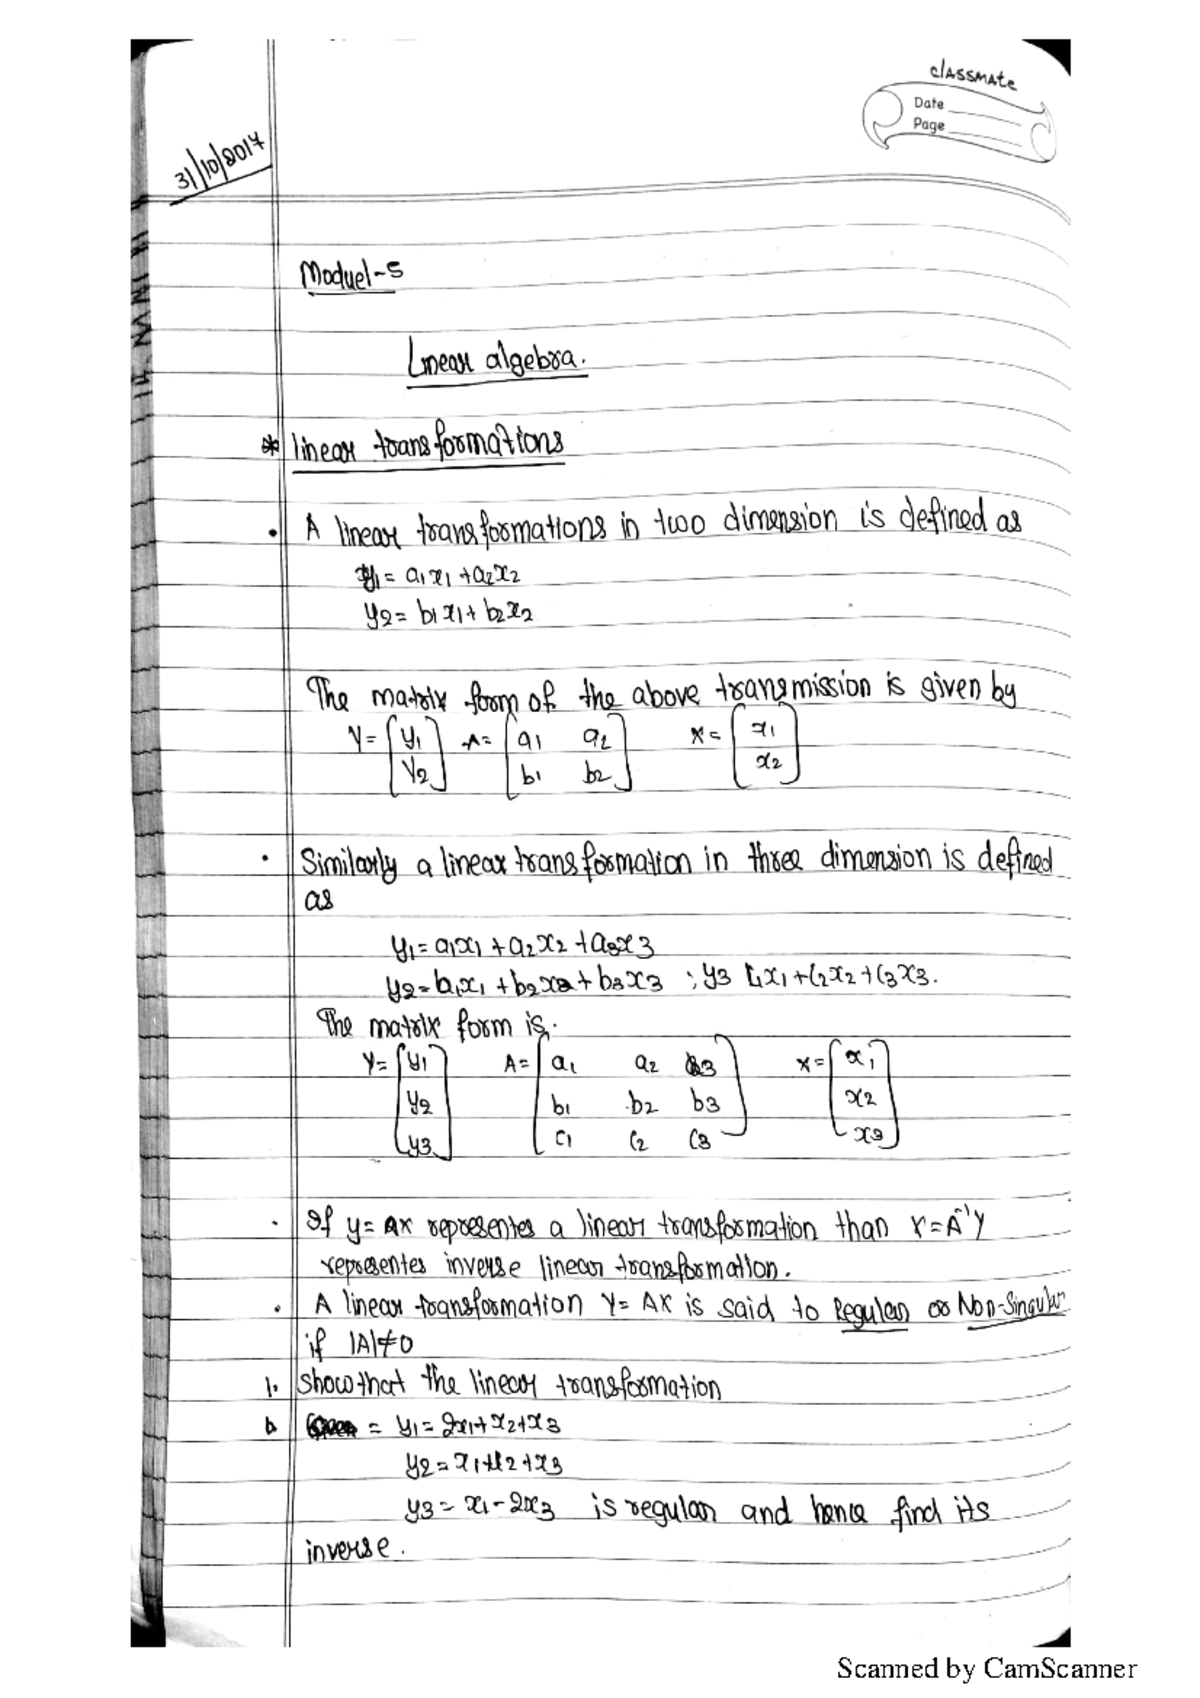 classmate
Date
Page
31/10/2017
Moduel-5
Linear algebra.
* linear transformations
• A linear transformations in two dimension is defined as
y1 = a1x1 + a2x2
y2 = b1x1 + b2x2
The matrix form of the above transmission is given by
Y = [y1 A = [a1 a2 X = [x1
y2] b1 b2] x2]
• Similarly a linear transformation in three dimension is defined
as
y1 = a1x1 + a2x2 + a3x3
y2 = b1x1 + b2x2 + b3x3 ; y3 C1x1 + C2x2 + C3x3.
The matrix form is.
Y = [y1 A = [a1 a2 a3 X = [x1
y2 b1 b2 b3 x2
y3] c1 c2 c3] x3]
• If y = Ax representes a linear transformation than X = A⁻¹Y
representes inverse linear transformation.
• A linear transformation Y = AX is said to Regular or Non-Singular
if |A| ≠ 0
1. Show that the linear transformation
= y1 = 2x1 + x2 + x3
y2 = x1 + x2 + x3
y3 = x1 - 2x3 is regular and hence find its
inverse.
Scanned by CamScanner